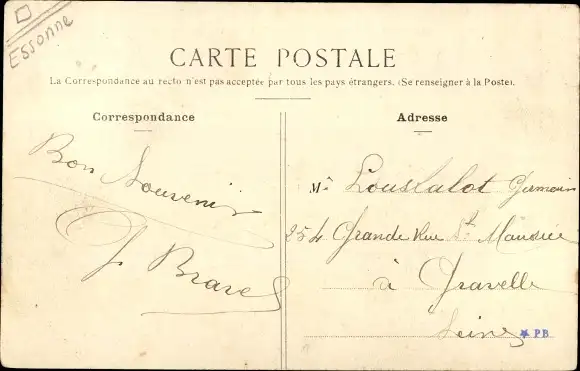 Essonne
CARTE POSTALE
La Correspondance au recto n'est pas acceptée par tous les pays étrangers. (Se renseigner à la Poste).
Correspondance
Bon Souvenir
Adresse
Mr Loustalot Germain
254 Grande Rue St. Maurice
à Gravelle
Seine
PB